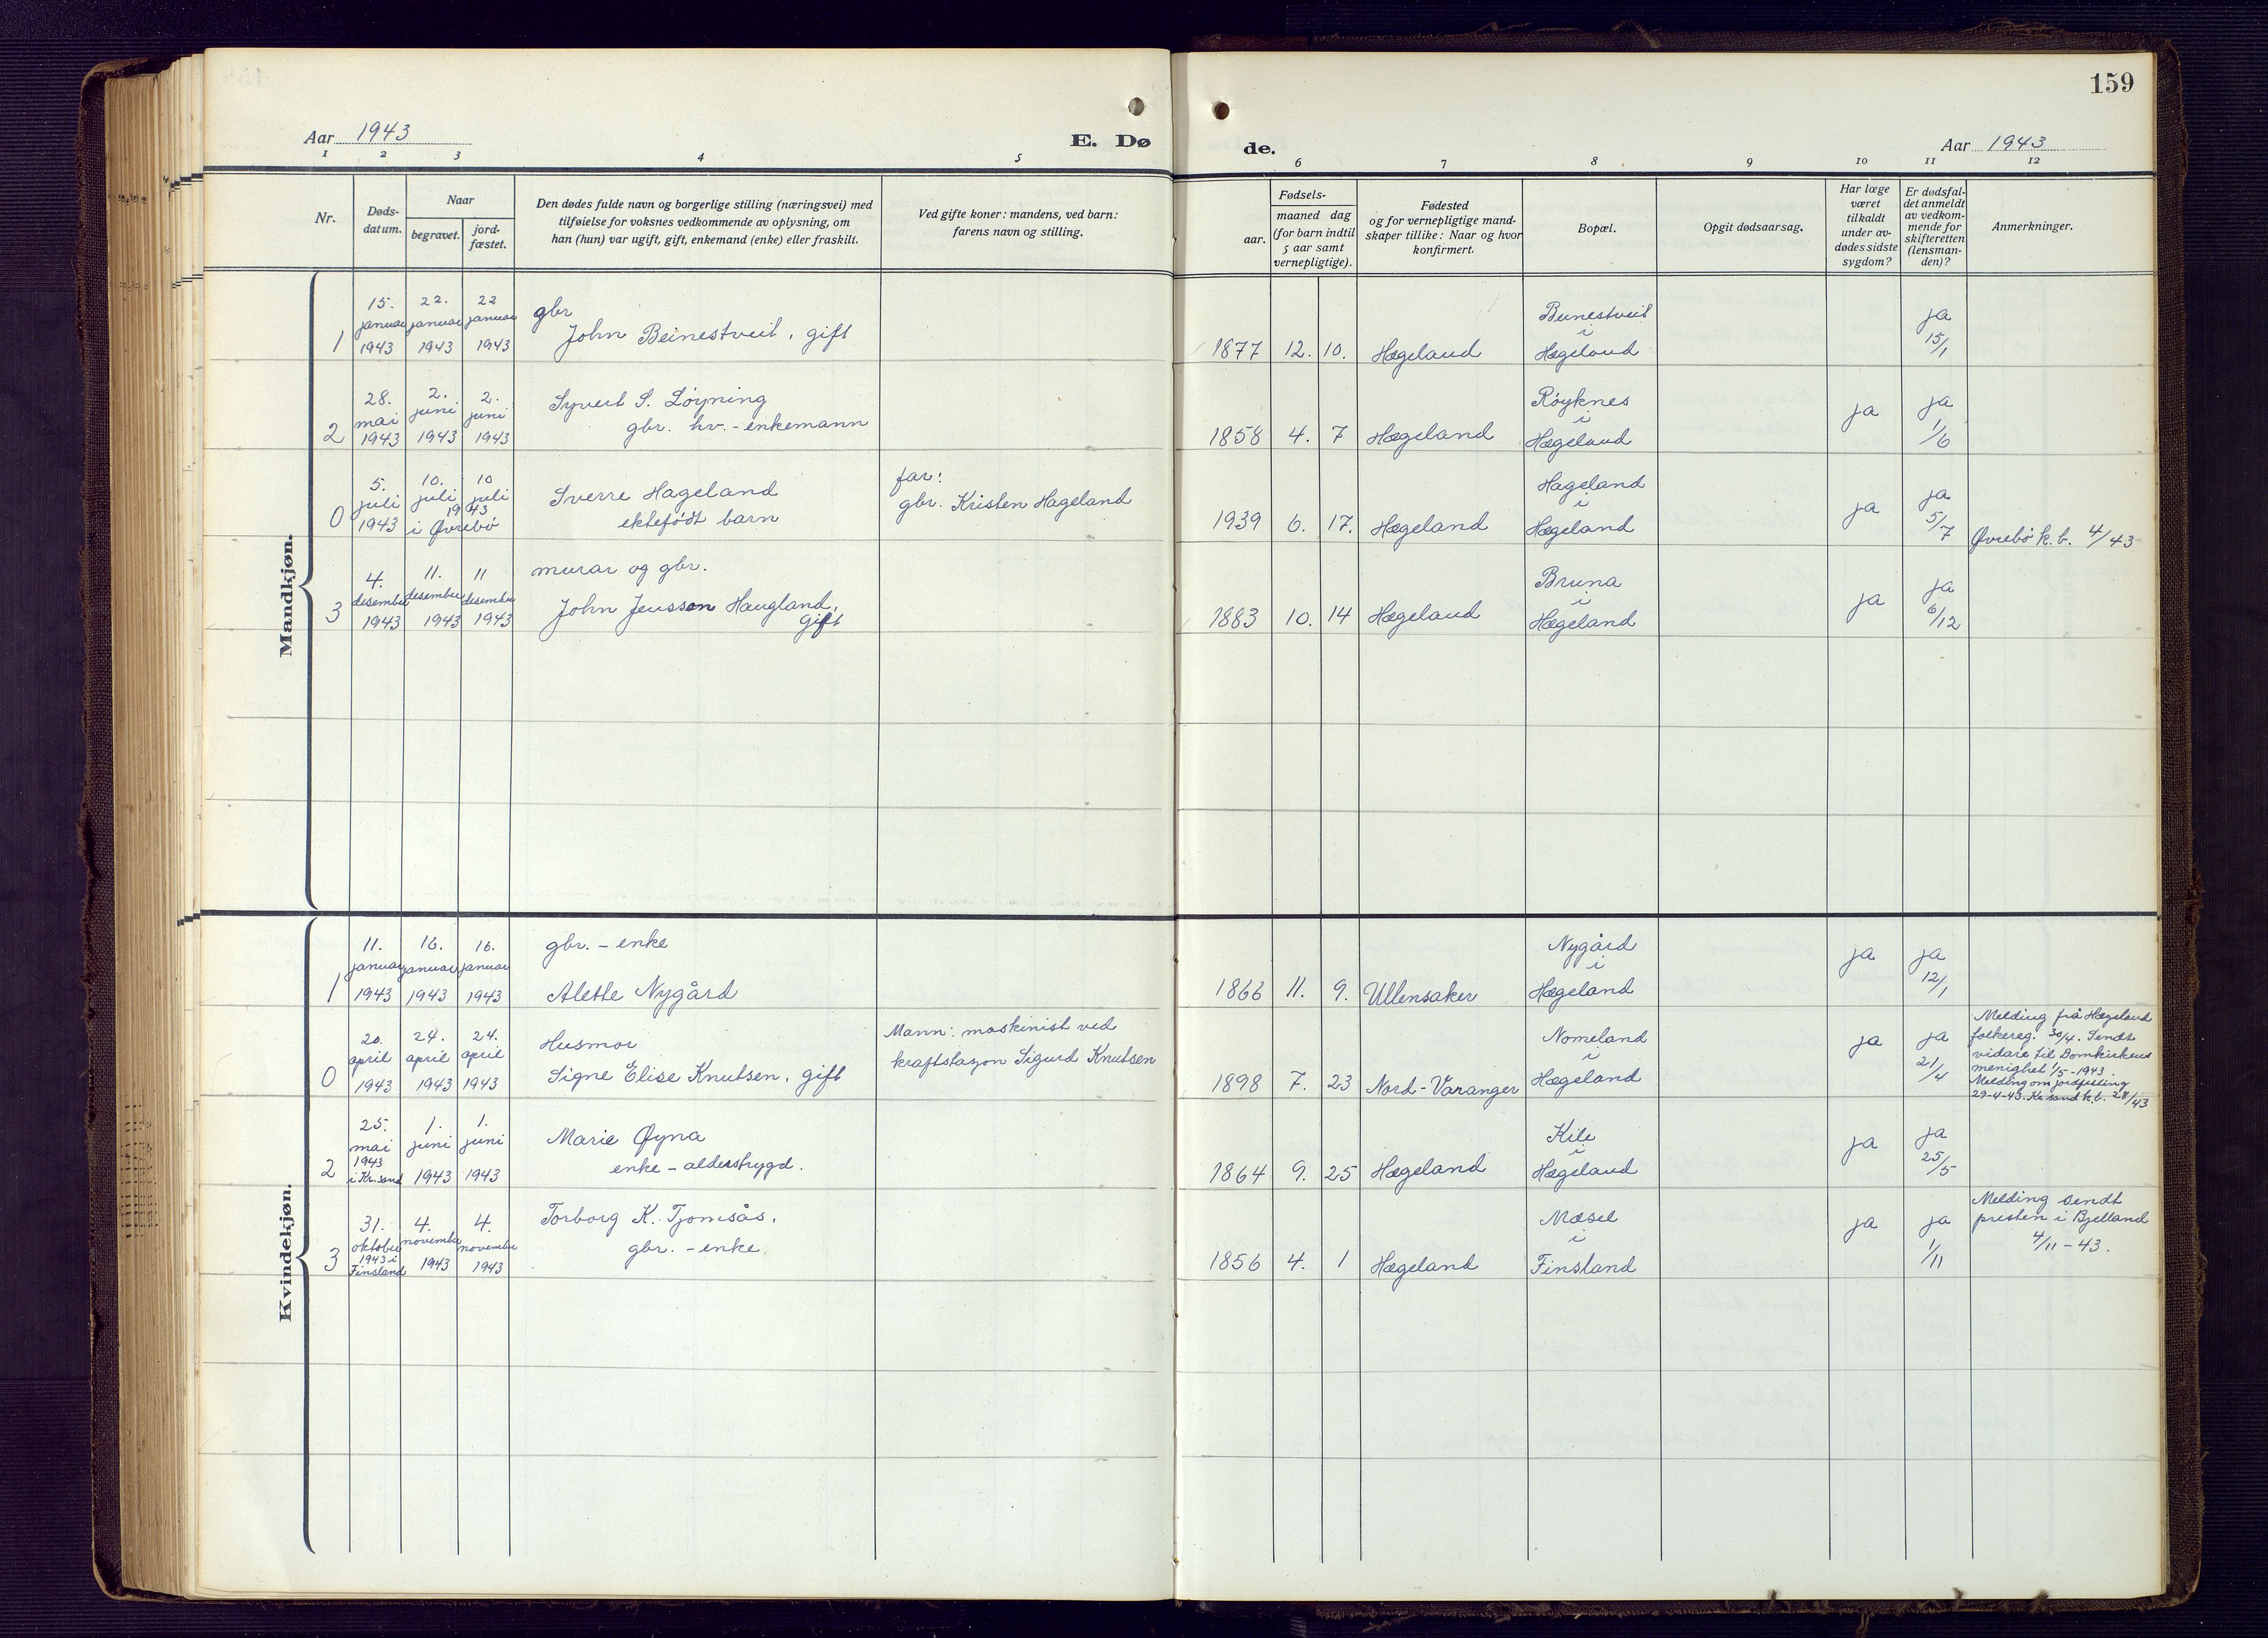 159
Aar 1943
E. Dø
de.
Aar 1943
1 2 3 4 5
6 7 8 9 10 11 12
Nr.
Døds-
datum.
Naar
begravet.
jord-
fæstet.
Den dødes fulde navn og borgerlige stilling (næringsvei) med
tilføielse for voksnes vedkommende av oplysning, om
han (hun) var ugift, gift, enkemand (enke) eller fraskilt.
Ved gifte koner: mandens, ved barn:
farens navn og stilling.
Fødsels-
aar.
maaned dag
(for barn indtil
5 aar samt
vernepligtige).
Fødested
og for vernepligtige mand-
skaper tillike: Naar og hvor
konfirmert.
Bopæl.
Opgit dødsaarsag.
Har læge
været
tilkaldt
under av-
dødes sidste
sygdom?
Er dødsfal-
det anmeldt
av vedkom-
mende for
skifteretten
(lensman-
den)?
Anmerkninger.
Mandkjøn.
1
15.
januar
1943
22.
januar
1943
22
januar
1943
gbr
John Beinestveit, gift
1877 12. 10. Hægeland
Beinestveit
i
Hægeland
ja
15/1
2
28.
mai
1943
2.
juni
1943
2.
juni
1943
Syvert S. Løyning
gbr. hv. - enkemann
1858 4. 7 Hægeland
Røyknes
i
Hægeland
ja
ja
1/6
0
5.
juli
1943
10.
juli
10
juli
1943
i Øvrebø
Sverre Hageland
ektefødt barn
far:
gbr. Kristen Hageland
1939 6. 17. Hægeland
Hageland
i
Hægeland
ja
ja
5/7
Øvrebø k. b. 4/43
3
4.
desember
1943
11.
desember
1943
11
desember
1943
murar og gbr.
John Jenssen Haugland,
gift
1883 10. 14 Hægeland
Bruna
i
Hægeland
ja
ja
6/12
Kvindekjøn.
1
11.
januar
1943
16.
januar
1943
16.
januar
1943
gbr. - enke
Alette Nygård
1866 11. 9. Ullensaker
Nygård
i
Hægeland
ja
ja
12/1
0
20.
april
1943
24.
april
1943
24.
april
1943
Husmor
Signe Elise Knutsen, gift
Mann: maskinist ved
kraftstasjon Sigurd Knutsen
1898 7. 23 Nord-Varanger
Nomeland
i
Hægeland
ja
ja
21/4
Melding frå Hægeland
folkereg. 30/4. Sendt
vidare til Domkirkens
menighet 1/5-1943.
Melding om jordfesting
29-4-43. Kr.sand k.b. 28/43
2
25.
mai
1943
i Kr.sand
1.
juni
1943
1.
juni
1943
Marie Øyna
enke - alderstrygd.
1864 9. 25 Hægeland
Kile
i
Hægeland
ja
ja
25/5
3
31.
oktober
1943 i
Finsland
4.
november
1943
4.
november
1943
Torborg K. Tjomsås,
gbr. - enke
1856 4. 1 Hægeland
Mæsel
i
Finsland
ja
ja
1/11
Melding sendt
presten i Bjelland
4/11-43.